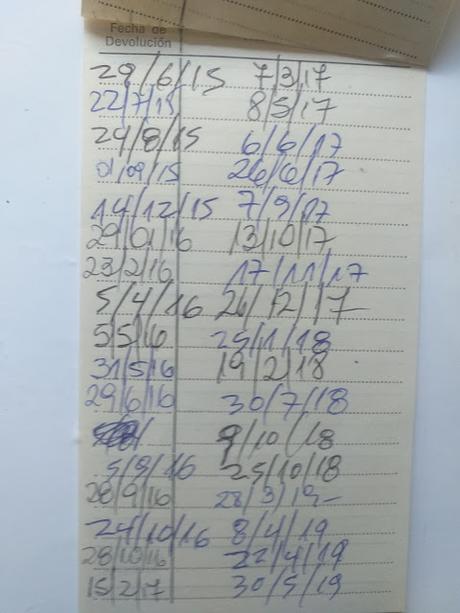 Fecha de
Devolución
29/6/15 7/3/17
22/7/15 8/5/17
24/8/15 6/6/17
01/09/15 26/6/17
14/12/15 7/9/17
29/01/16 13/10/17
23/2/16 17/11/17
5/4/16 26/12/17
5/5/16 25/1/18
31/5/16 19/2/18
29/6/16 30/7/18
9/10/18
5/9/16 25/10/18
28/9/16 28/3/19
24/10/16 8/4/19
28/10/16 22/4/19
15/2/17 30/5/19